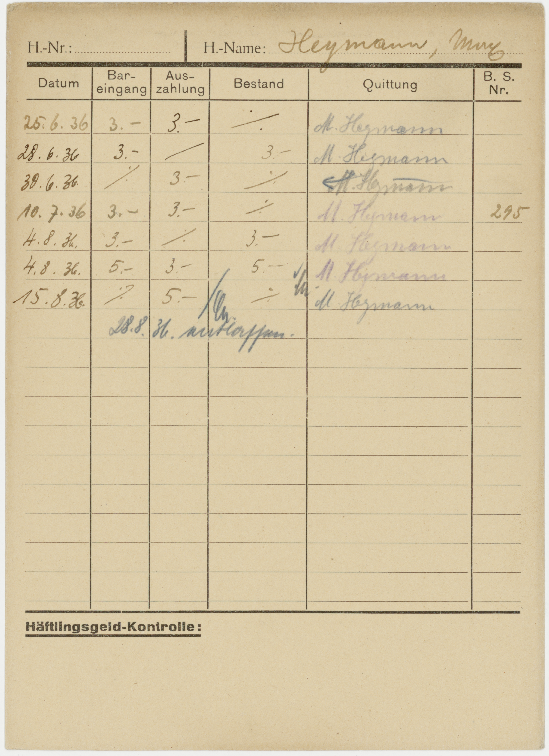 H.-Nr.: H.-Name: Heymann, Max
Datum Bar-eingang Aus-zahlung Bestand Quittung B. S. Nr.
25.6.36 3.- 3.- ./. M. Heymann
28.6.36 3.- / 3.- M. Heymann
30.6.36. ./. 3.- ./. M. Heymann
10.7.36 3.- 3.- ./. M. Heymann 295
4.8.36. 3.- ./. 3.- M. Heymann
4.8.36. 5.- 3.- 5.- M. Heymann
15.8.36. ./. 5.- ./. M. Heymann
28.8.36. entlassen.
Häftlingsgeld-Kontrolle: